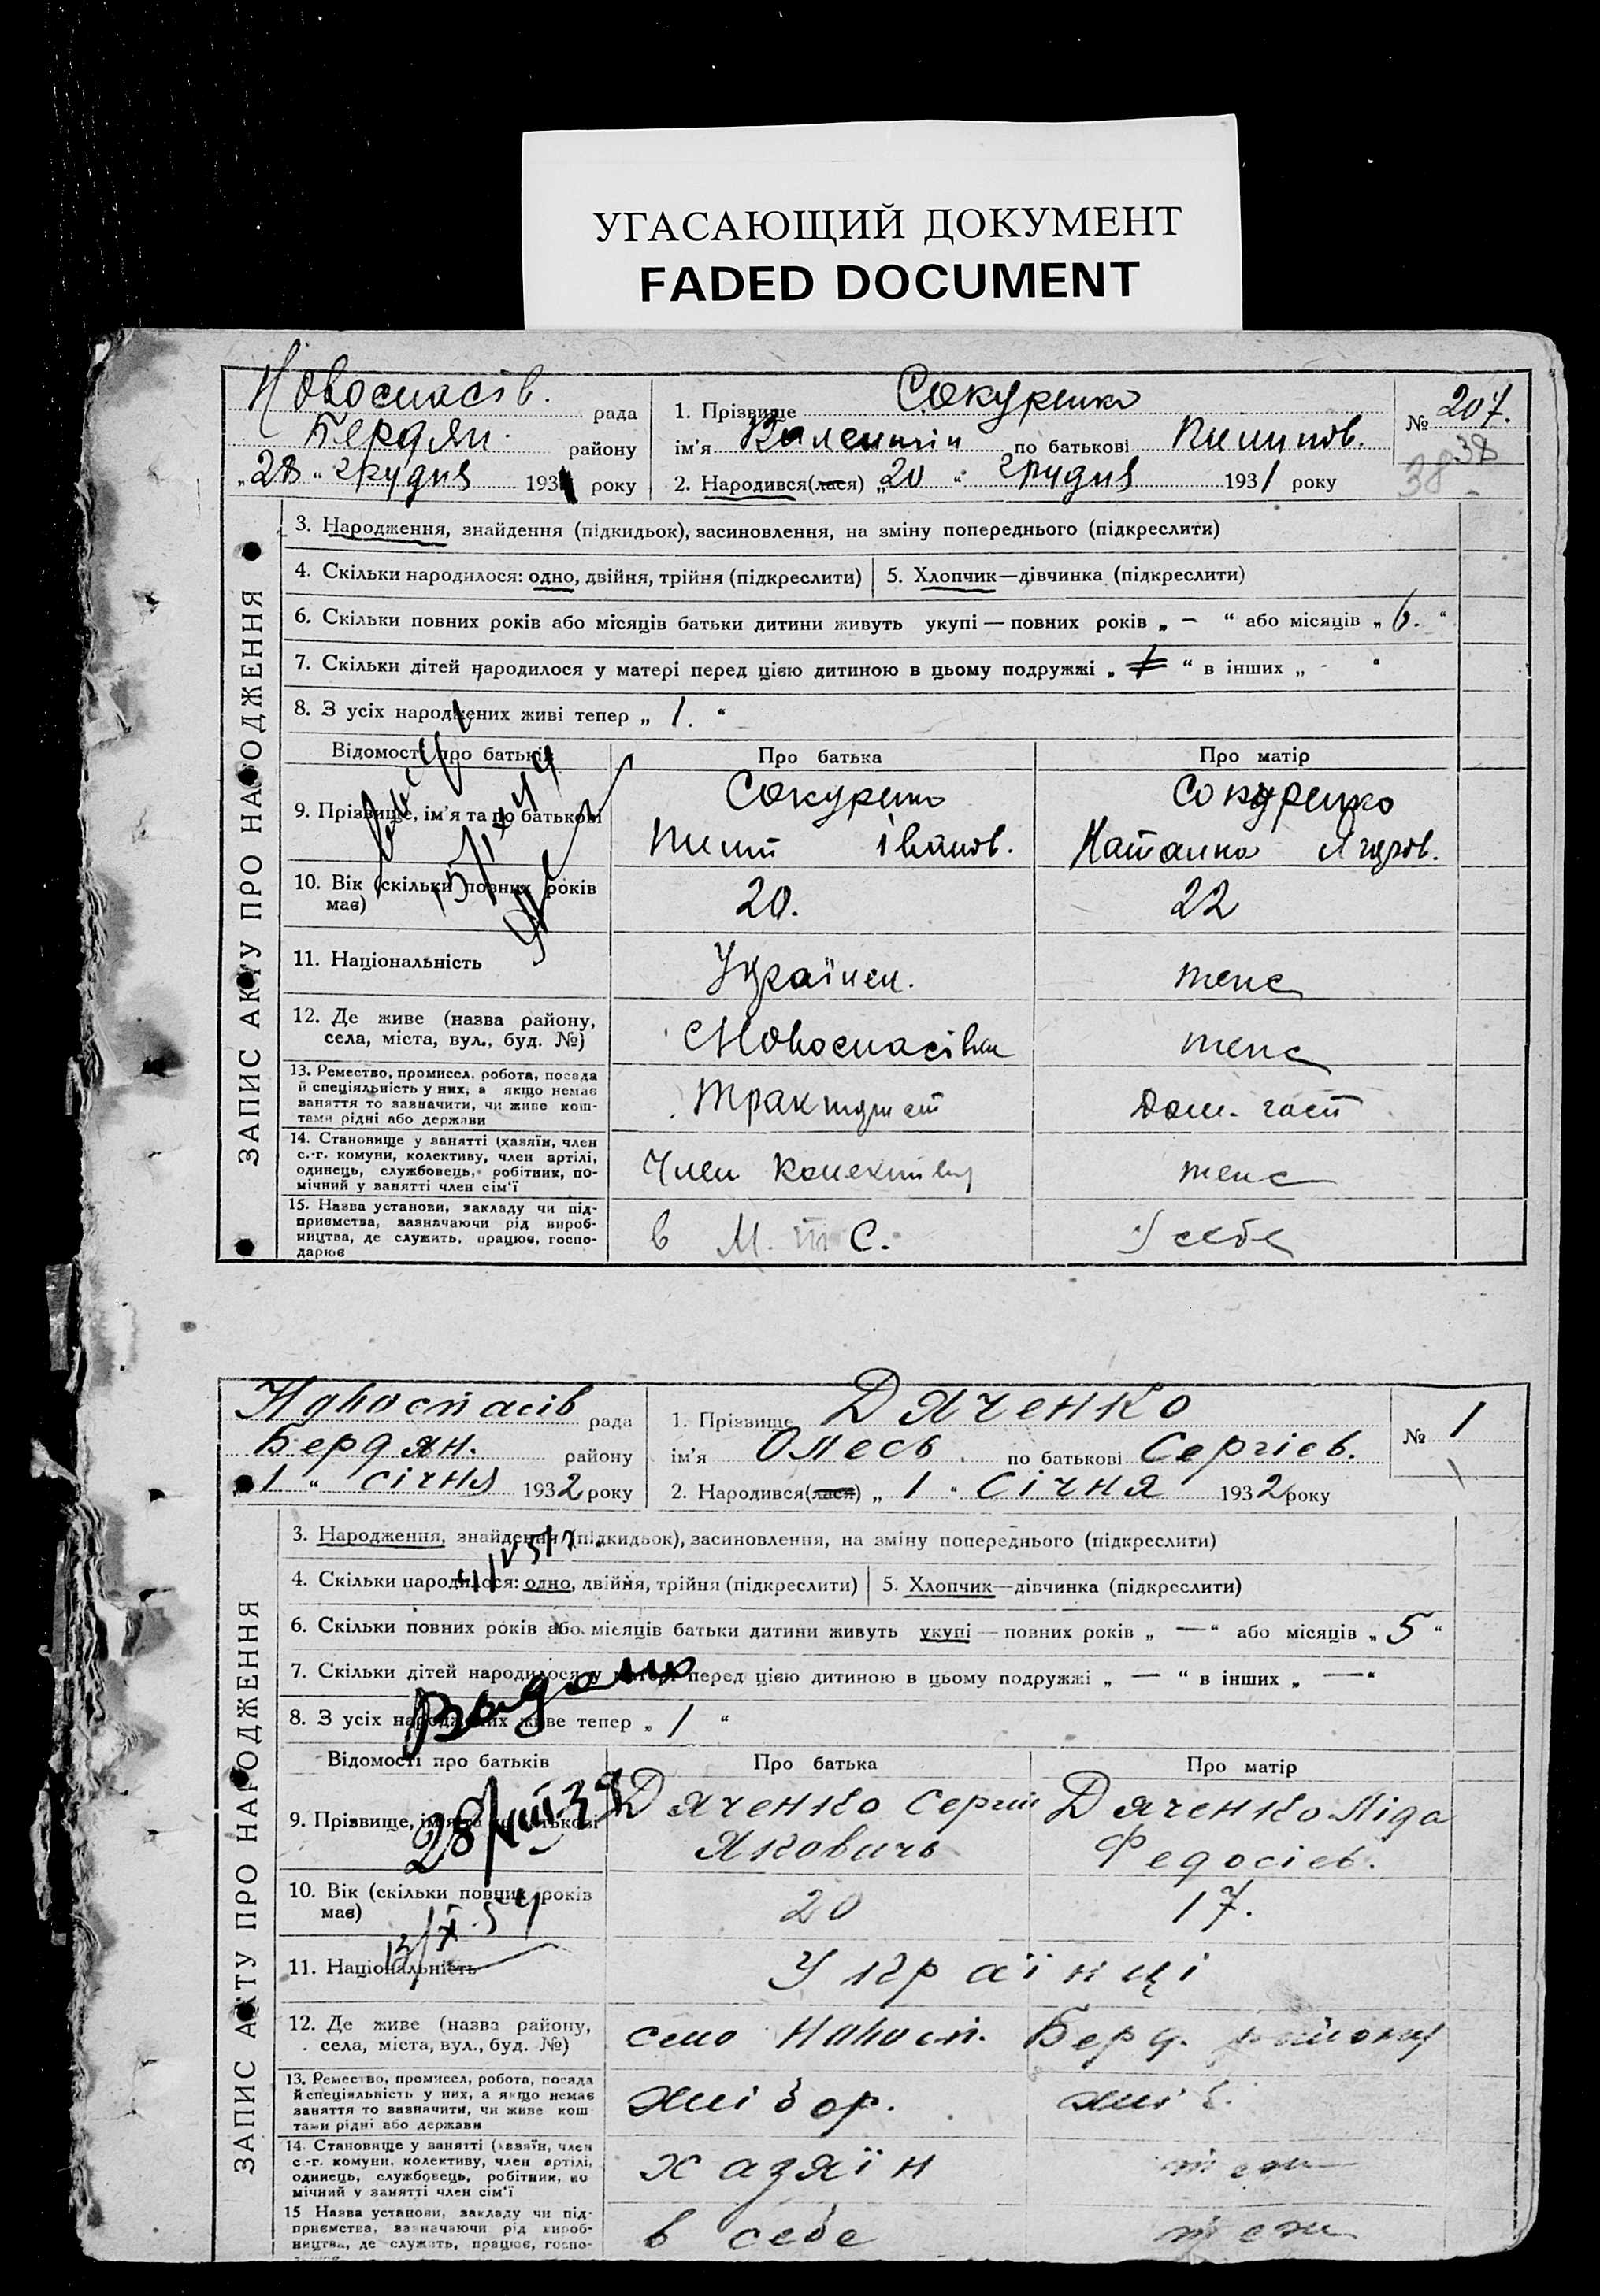 УГАСАЮЩИЙ ДОКУМЕНТ
FADED DOCUMENT
Новоспасів. рада
Бердян. району
„28“ грудня 1931 року
1. Прізвище Сокуренко
ім'я Валентін по батькові
2. Народився(лася) „20“ грудня 1931 року
№ 207.
38
38
ЗАПИС АКТУ ПРО НАРОДЖЕННЯ
3. Народження, знайдення (підкидьок), засиновлення, на зміну попереднього (підкреслити)
4. Скільки народилося: одно, двійня, трійня (підкреслити) 5. Хлопчик—дівчинка (підкреслити)
6. Скільки повних років або місяців батьки дитини живуть укупі — повних років „ - “ або місяців „ 6. “
7. Скільки дітей народилося у матері перед цією дитиною в цьому подружжі „ “ в інших „ - “
8. З усіх народжених живі тепер „ 1. “
Відомості про батьків Про батька Про матір
9. Прізвище, ім'я та по батькові Сокуренко Сокуренко
іванов. Наталка
10. Вік (скільки повних років має) 20. 22
11. Національність Українец. теже
12. Де живе (назва району, села, міста, вул., буд. №) Новоспасівка теже
13. Ремество, промисел, робота, посада й спеціяльність у них, а якщо немає заняття то зазначити, чи живе коштами рідні або держави Трактурист дом. госп
14. Становище у занятті (хазяїн, член с.-г. комуни, колективу, член артілі, одинець, службовець, робітник, помічний у занятті член сім'ї Член колективу теже
15. Назва установи, закладу чи підприємства, зазначаючи рід виробництва, де служить, працює, господарює в М. т С. У себе
Новоспасів рада
Бердян. району
„1“ січня 1932 року
1. Прізвище Дяченко
ім'я Олесь по батькові Сергієв.
2. Народився(лася) „1“ Січня 1932 року
№ 1
ЗАПИС АКТУ ПРО НАРОДЖЕННЯ
3. Народження, знайдення (підкидьок), засиновлення, на зміну попереднього (підкреслити)
4. Скільки народилося: одно, двійня, трійня (підкреслити) 5. Хлопчик—дівчинка (підкреслити)
6. Скільки повних років або місяців батьки дитини живуть укупі — повних років „ — “ або місяців „ 5 “
7. Скільки дітей народилося у матері перед цією дитиною в цьому подружжі „ — “ в інших „ — “
8. З усіх народжених живе тепер „ 1 “
Відомості про батьків Про батька Про матір
9. Прізвище, ім'я та по батькові Дяченко Сергій Дяченко Ліда
Яковичь Федосієв.
28/VIII 39
10. Вік (скільки повних років має) 20 17.
13/X 54
11. Національність Українці
12. Де живе (назва району, села, міста, вул., буд. №) село Новосп. Берд. району
13. Ремество, промисел, робота, посада й спеціяльність у них, а якщо немає заняття то зазначити, чи живе коштами рідні або держави хлібор. хліб.
14. Становище у занятті (хазяїн, член с.-г. комуни, колективу, член артілі, одинець, службовець, робітник, помічний у занятті член сім'ї хазяїн теж
15 Назва установи, закладу чи підприємства, зазначаючи рід виробництва, де служить, працює, госпо- в себе теж